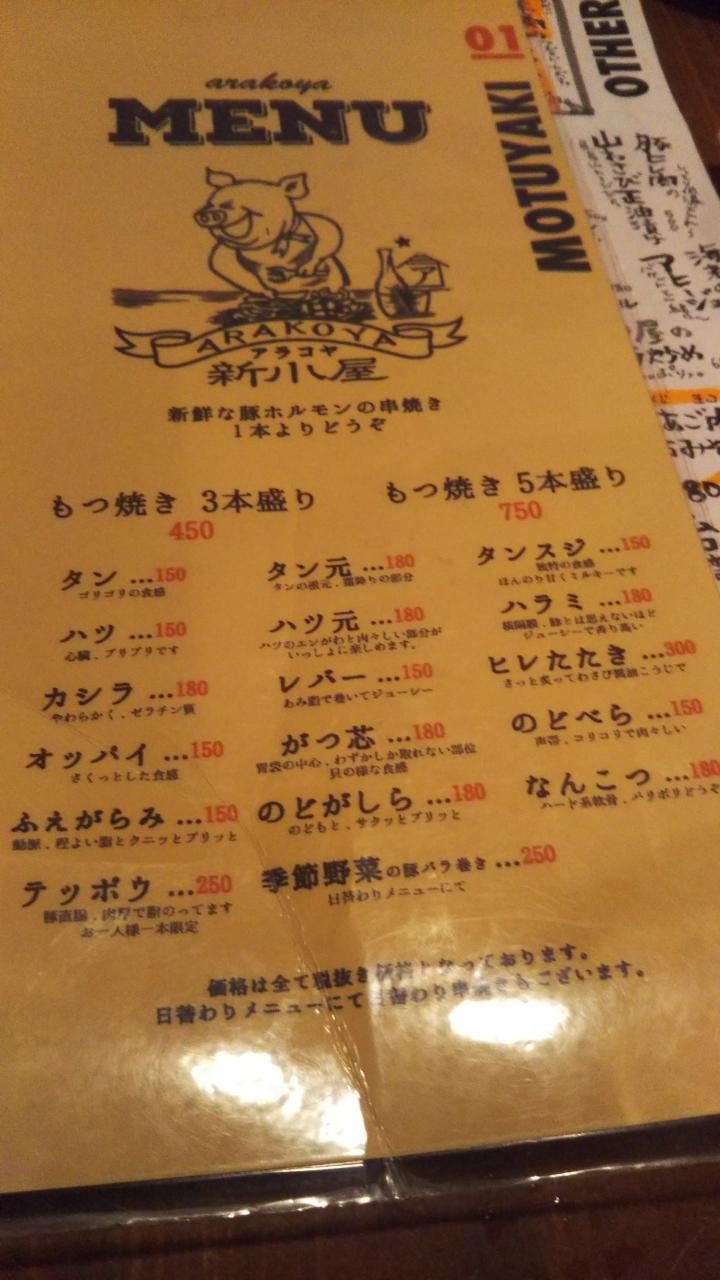 01
MOTUYAKI
arakoya
MENU
ARAKOYA
アラコヤ
新小屋
新鮮な豚ホルモンの串焼き
1本よりどうぞ
もつ焼き 3本盛り
450
もつ焼き 5本盛り
750
タン …150
ゴリゴリの食感
タン元 …180
タンの根元、霜降りの部分
タンスジ …150
独特の食感
ほんのり甘くミルキーです
ハツ …150
心臓、プリプリです
ハツ元 …180
ハツのエンがわと肉々しい部分が
いっしょに楽しめます。
ハラミ …180
横隔膜、豚とは思えないほど
ジューシーで香り高い
カシラ …180
やわらかく、ゼラチン質
レバー …150
あみ脂で巻いてジューシー
ヒレたたき …300
さっと炙ってわさび醤油こうじで
オッパイ …150
さくっとした食感
がつ芯 …180
胃袋の中心、わずかしか取れない部位
貝の様な食感
のどべら …150
声帯、コリコリで肉々しい
ふえがらみ …150
動脈、程よい脂とクニッとプリッと
のどがしら …180
のどもと、サクッとプリッと
なんこつ …180
ハード系軟骨、バリボリどうぞ
テッポウ …250
豚直腸、肉厚で脂のってます
お一人様一本限定
季節野菜の豚バラ巻き …250
日替わりメニューにて
価格は全て税抜き価格となっております。
日替わりメニューにて日替わり串焼きもございます。
OTHER
山わさび正油漬け
屋の
炒め